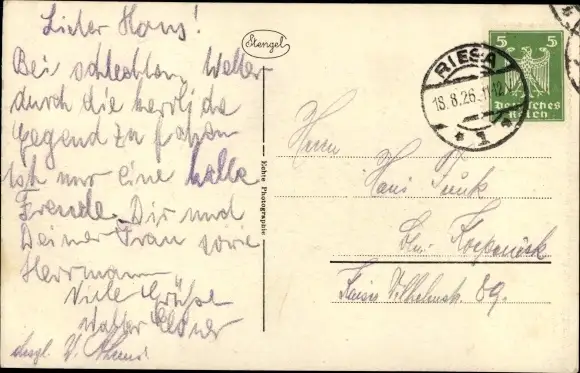 Lieber Hans!
Bei schlechtem Wetter
durch die herrliche
Gegend zu fahren
ist nur eine halbe
Freude. Dir und
Deiner Frau sowie
Herrmann
Viele Grüße
Walter
desgl.
Stengel
Echte Photographie
RIESA
18.8.26. 11-12
* 1 *
5 5
Deutsches
Reich
Herrn
Hans
Bln. Köpenick
Kaiser Wilhelmstr. 89.